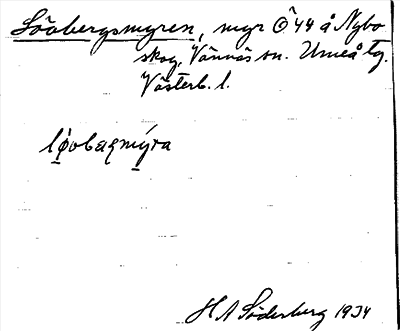 Lövbergsmyren, myr Ö 44 å Nybo
skog, Vännäs sn. Umeå tg.
Västerb. l.
H A Söderberg 1934